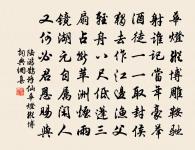 華燈縱博雕鞍馳
射誰記當年豪舉
酒徒一一取封侯
獨去作江邊漁父
輕舟八尺低篷三
扇占斷蘋洲煙雨
鏡湖元自屬閑人
又何必君恩賜與
陸游鵲橋仙華燈縱博
詞典網集